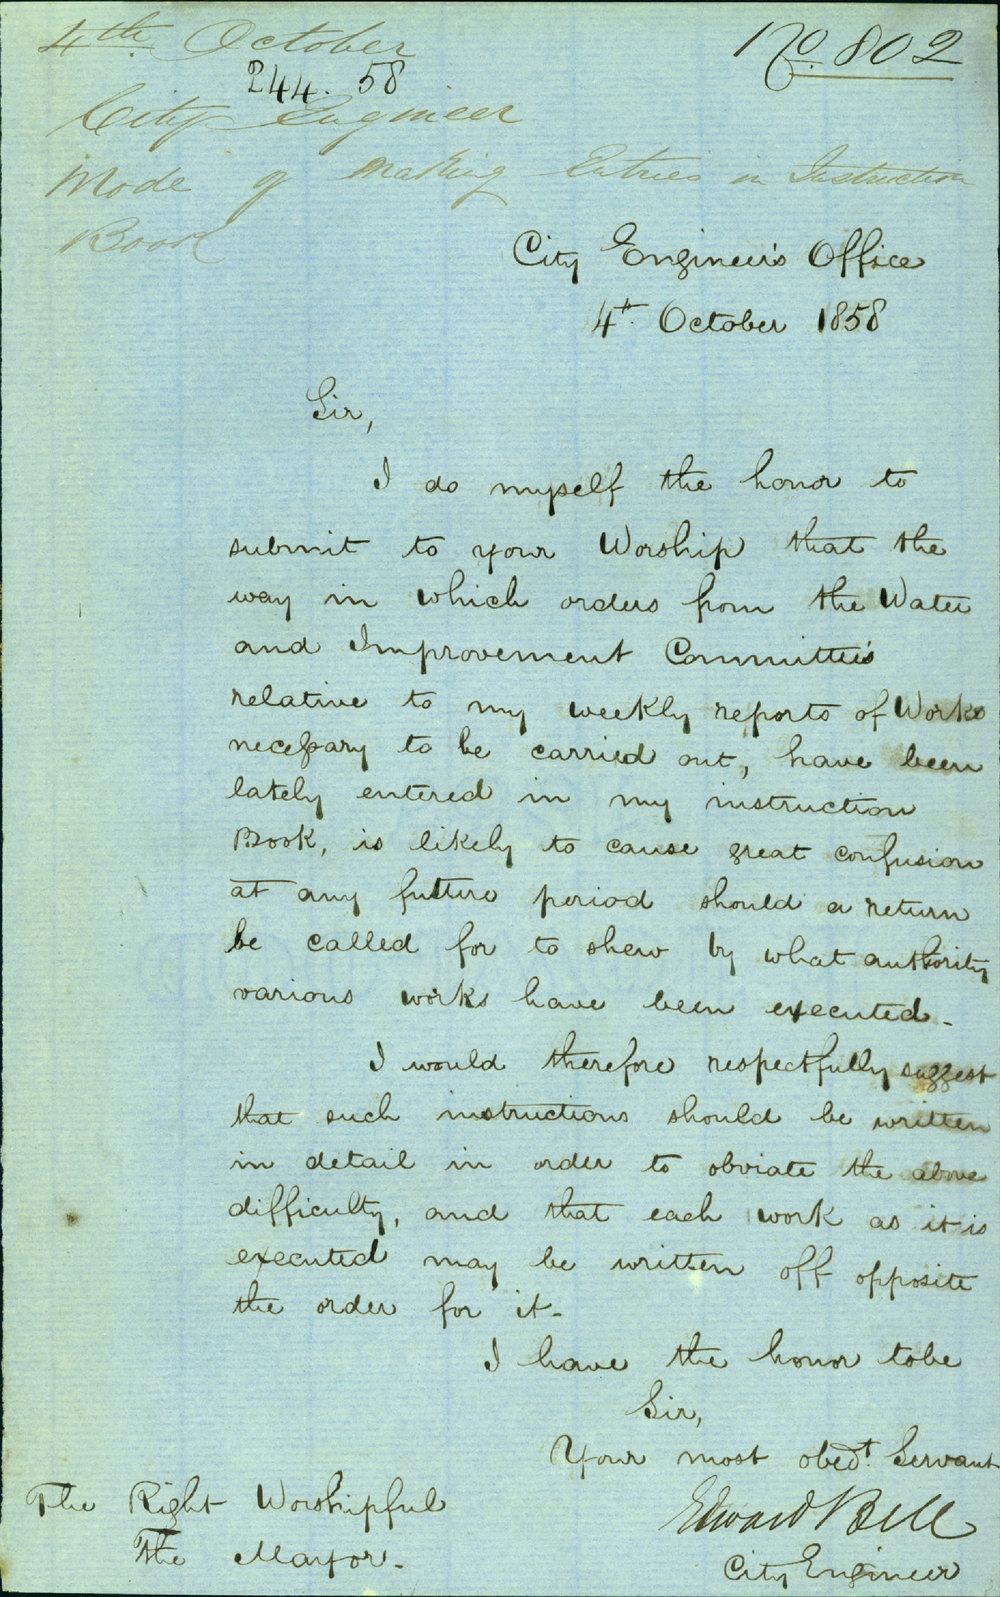 4th October
No. 802
244. 58
City Engineer
Mode of making Entries in Instruction
Book
City Engineer's Office
4th. October 1858
Sir,
I do myself the honor to
submit to your Worship that the
way in which orders from the Water
and Improvement Committee's
relative to my weekly reports of Works
necessary to be carried out, have been
lately entered in my instruction
Book, is likely to cause great confusion
at any future period should a return
be called for to shew by what authority
various works have been executed.
I would therefore respectfully suggest
that such instructions should be written
in detail in order to obviate the above
difficulty, and that each work as it is
executed may be written off opposite
the order for it.
I have the honor to be
Sir,
Your most obedt. Servant
Edward Bell
City Engineer
The Right Worshipful
The Mayor.